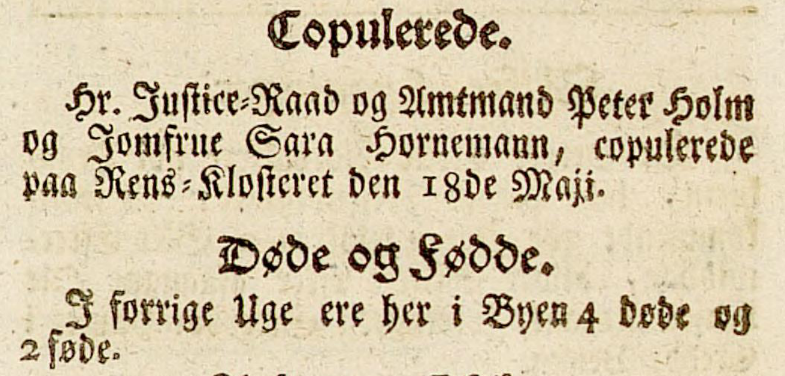 Copulerede.
Hr. Justice-Raad og Amtmand Peter Holm
og Jomfrue Sara Hornemann, copulerede
paa Rens-Klosteret den 18de Maji.
Døde og Fødde.
I forrige Uge ere her i Byen 4 døde og
2 føde.